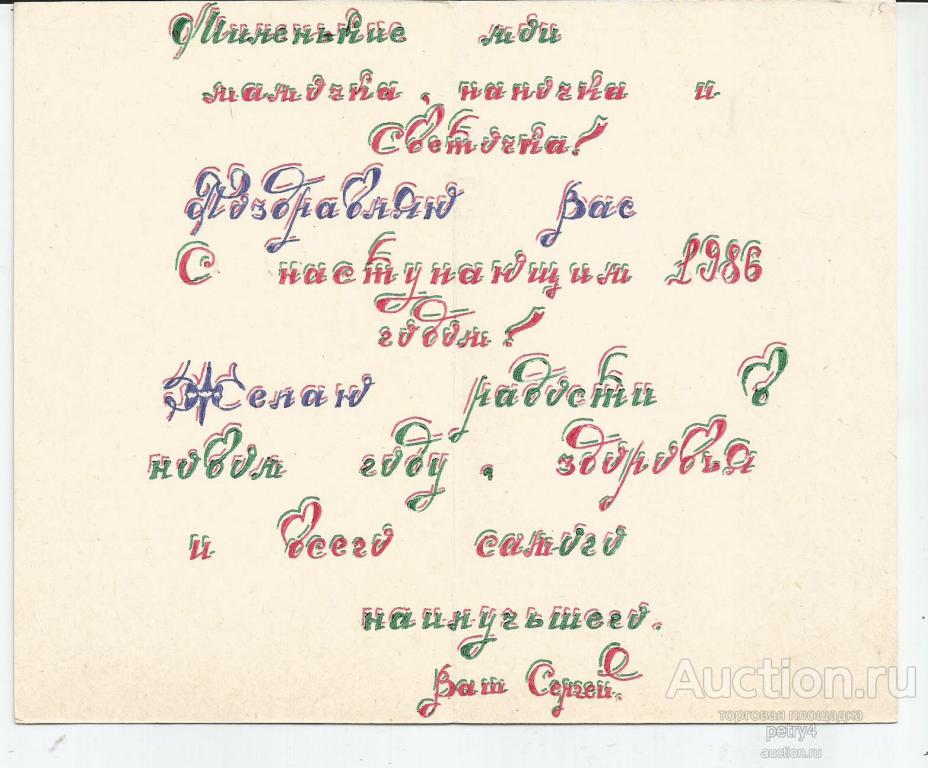 Миленькие мои
мамочка, папочка и
Светочка!
Поздравляю Вас
С наступающим 1986
годом!
Желаю радости в
новом году, здоровья
и всего самого
наилучьшего.
Ваш Сергей.
Auction.ru
торговая площадка
petry4
auction.ru
15